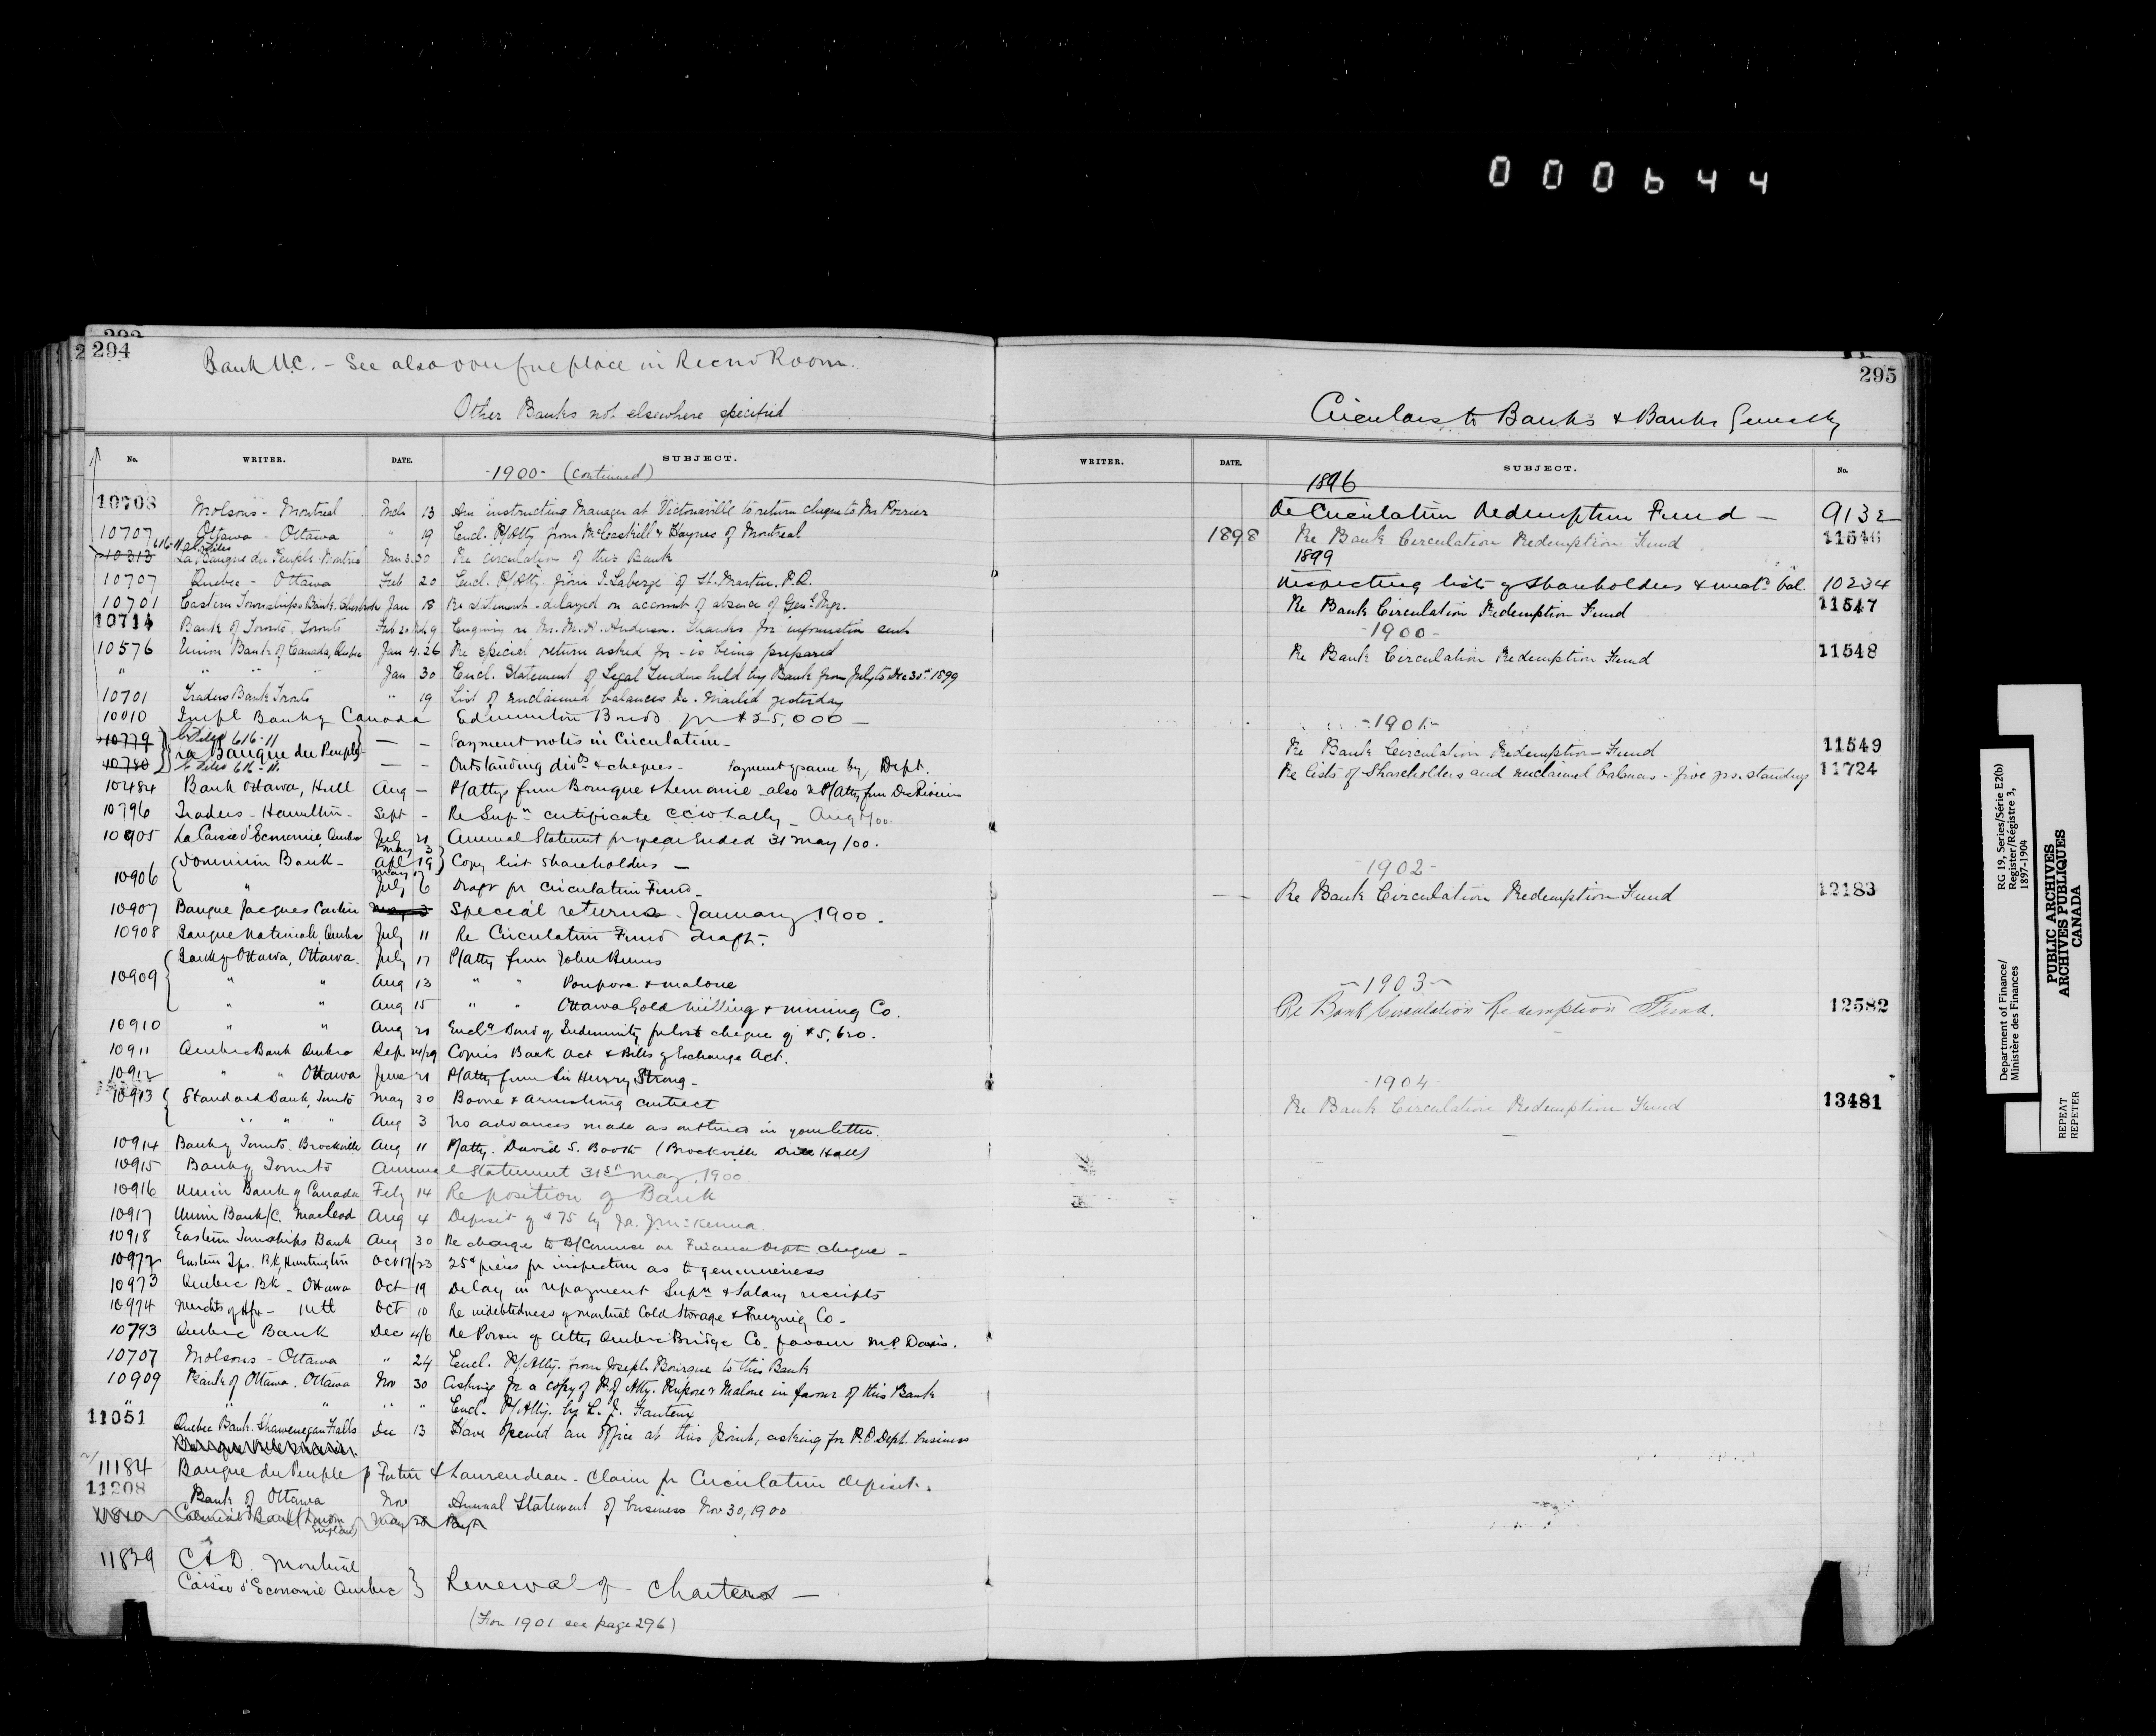 000644
294
Bank U.C. - See also over fireplace in Record Room.
Other Banks not elsewhere specified
No. WRITER. DATE. SUBJECT.
-1900- (Continued)
10708 Molsons - Montreal Mch 13 Am instructing Manager at Victoriaville to return cheque to Mr Poirier
10707 Ottawa - Ottawa " 19 Encl. P/Atty from McCaskill & Haynes of Montreal
616-11
10313 La Banque du Peuple - Montreal Jan 3.30 Re circulation of this Bank
10707 Quebec - Ottawa Feb 20 Encl. P/Atty from J. Laberge of St. Martin. P.Q.
10701 Eastern Townships Bank. Jan 18 Re statement - delayed on account of absence of Genl Mgr.
10714 Bank of Toronto, Toronto Feb 20 Mch 9 Enquiry re Mr. Anderson. Thanks for information sent
10576 Union Bank of Canada, Quebec Jan 4.26 Re special return asked for - is being prepared
" " " Jan 30 Encl. Statement of Legal Tenders held by Bank from July to Dec 31st 1899
10701 Traders Bank Toronto " 19 List of unclaimed balances &c. mailed yesterday
10010 Impl Bank of Canada Edmonton Bonds for $25,000 -
10779 616-11 La Banque du Peuple - - Payment notes in Circulation -
10780 616-11. - - Outstanding divds & cheques - Payment of same by Dept.
10484 Bank Ottawa, Hull Aug - P/attys from Bourque & Lemoine - also P/atty from
10796 Traders - Hamilton - Sept - Re Supn certificate Lally - Aug /00.
10905 La Caisse d'Economie, Quebec July 21 Annual Statement for year Ended 31 May /00.
10906 { Dominion Bank - May 3 Apl 19 } Copy list shareholders -
" July 6 Draft for Circulation Fund -
10907 Banque Jacques Cartier May 3 Special returns - January 1900.
10908 Banque Nationale, Quebec July 11 Re Circulation Fund draft -
10909 { Bank of Ottawa, Ottawa. July 17 P/atty from John
" " Aug 13 " " Poupore & Malone
" " Aug 15 " " Ottawa Gold Milling & Mining Co.
10910 " " Aug 21 Encl Bond of Indemnity for lost cheque of $5,620.
10911 Quebec Bank Quebec Sep 24/29 Copies Bank Act & Bills of Exchange Act.
10912 " " Ottawa June 21 P/atty from Sir Henry Strong -
10913 { Standard Bank, Toronto May 30 Boone & Armstrong contract
" " " Aug 3 No advances made as outlined in your letter.
10914 Bank of Toronto. Brockville Aug 11 P/atty. David S. Booth (Brockville Drill Hall)
10915 Bank of Toronto Annual Statement 31st May, 1900
10916 Union Bank of Canada Feby 14 Re position of Bank
10917 Union Bank/C. Macleod Aug 4 Deposit of $75 by Ja. J. McKenna.
10918 Eastern Townships Bank Aug 30 Re charge to B/Commerce on Finance Dept. cheque -
10972 Eastern Tps. Bk, Huntingdon Oct 17/23 25¢ pieces for inspection as to genuineness
10973 Quebec Bk - Ottawa Oct 19 Delay in repayment Supn & Salary receipts
10974 Merchts of Hfx - Mtl Oct 10 Re indebtedness of Montreal Cold Storage & Freezing Co -
10793 Quebec Bank Dec 4/6 Re Power of Atty Quebec Bridge Co. favour M.P. Davis.
10707 Molsons - Ottawa " 24 Encl. P/Atty. from Joseph Bourque to this Bank
10909 Bank of Ottawa. Ottawa Nov 30 Asking for a copy of P. of Atty. Poupore & Malone in favour of this Bank
" " " " " Encl. P/Atty. by L. J. Fauteux
11051 Quebec Bank. Shawenegan Falls Dec 13 Have opened an office at this point, asking for P.O. Dept. business
11184 Banque du Peuple p Futer & Laurendeau - Claim for Circulation deposit.
11208 Bank of Ottawa Nov Annual Statement of business Nov 30, 1900
Colonial Bank (London England) May 28
11829 C & D. Montreal
Caisse d'Economie Quebec } Renewal of Charters -
(For 1901 see page 296)
295
Circulars to Banks & Banks Generally
WRITER. DATE. SUBJECT. No.
1896
Re Circulation Redemption Fund - 9132
1898 Re Bank Circulation Redemption Fund 11546
1899
Respecting lists of shareholders & uncld bal. 10234
Re Bank Circulation Redemption Fund 11547
-1900-
Re Bank Circulation Redemption Fund 11548
-1901-
Re Bank Circulation Redemption Fund 11549
Re lists of Shareholders and unclaimed balances - five yrs. standing 11724
-1902-
Re Bank Circulation Redemption Fund 12183
-1903-
Re Bank Circulation Redemption Fund. 12582
-1904
Re Bank Circulation Redemption Fund 13481
Department of Finance/
Ministère des Finances
RG 19, Series/Série E2(b)
Register/Régistre 3,
1897-1904
PUBLIC ARCHIVES
ARCHIVES PUBLIQUES
CANADA
REPEAT
REPETER